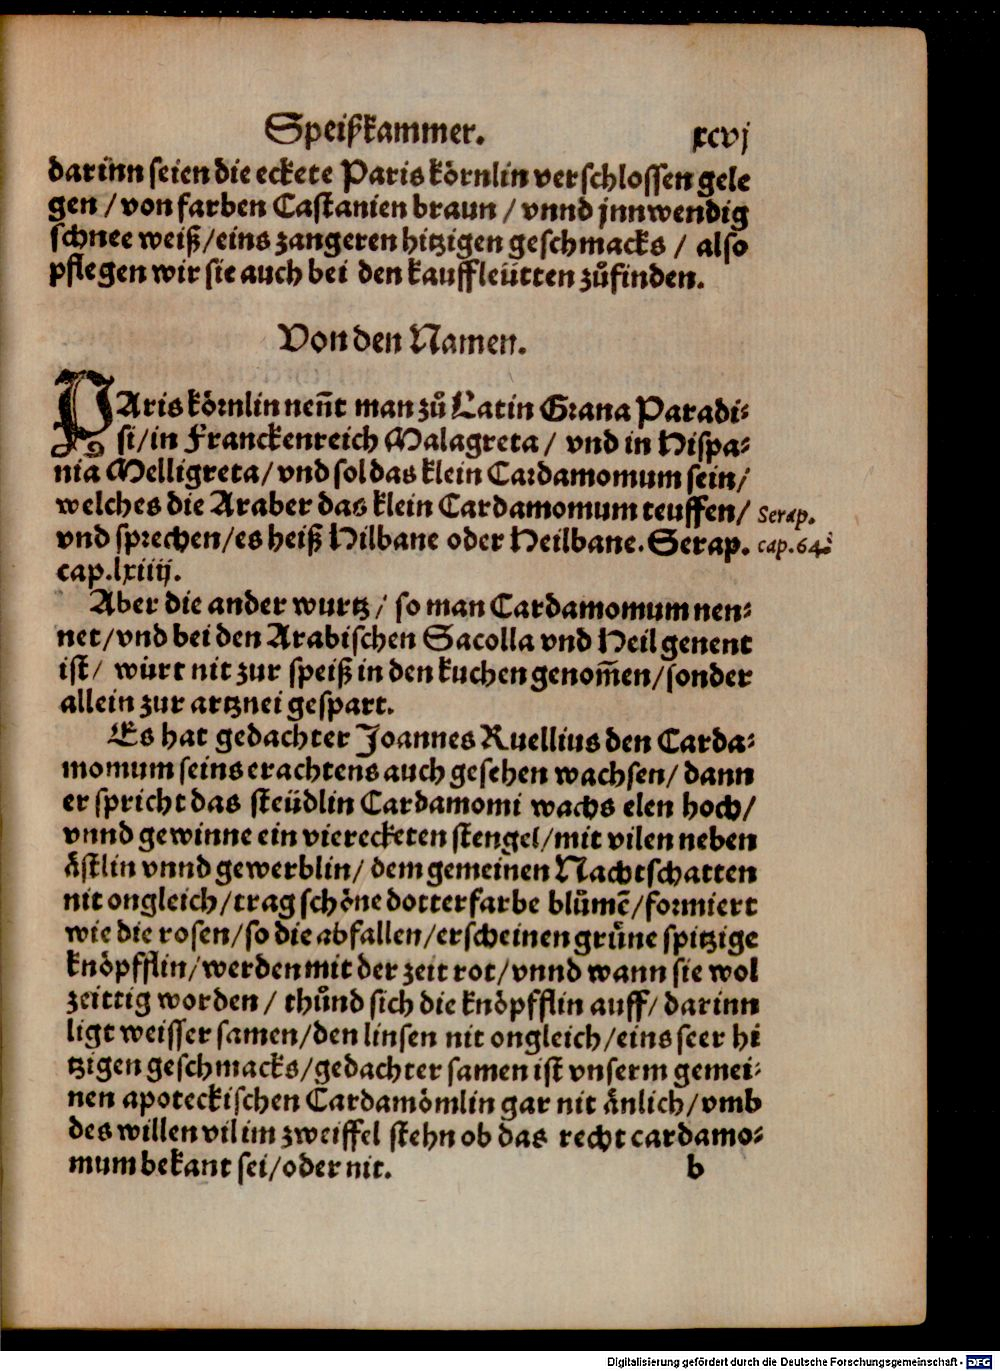 Speißkammer. xcvj
darinn seien die eckete Paris körnlin verschlossen gele
gen / von farben Castanien braun / vnnd jnnwendig
schnee weiß/eins zangeren hitzigen geschmacks / also
pflegen wir sie auch bei den kauffleütten zůfinden.
Von den Namen.
PAris körnlin neñt man zů Latin Grana Paradi⸗
si/in Franckenreich Malagreta / vnd in Hispa⸗
nia Melligreta/vnd sol das klein Cardamomum sein/
welches die Araber das klein Cardamomum teuffen/ Serap.
vnd sprechen/es heiß Hilbane oder Heilbane. Serap. cap. 64.
cap.lxiiij.
Aber die ander wurtz / so man Cardamomum nen⸗
net/vnd bei den Arabischen Sacolla vnd Heil genent
ist/ würt nit zur speiß in den kuchen genom̃en/sonder
allein zur artznei gespart.
Es hat gedachter Joannes Ruellius den Carda⸗
momum seins erachtens auch gesehen wachsen/ dann
er spricht das steüdlin Cardamomi wachs elen hoch/
vnnd gewinne ein vierecketen stengel/mit vilen neben
ästlin vnnd gewerblin/ dem gemeinen Nachtschatten
nit ongleich/trag schöne dotterfarbe blůmẽ/formiert
wie die rosen/so die abfallen/erscheinen grůne spitzige
knöpfflin/werden mit der zeit rot/vnnd wann sie wol
zeittig worden / thůnd sich die knöpfflin auff/ darinn
ligt weisser samen/den linsen nit ongleich/eins seer hi
tzigen geschmacks/gedachter samen ist vnserm gemei⸗
nen apoteckischen Cardamömlin gar nit änlich/vmb
des willen vil im zweiffel stehn ob das recht cardamo⸗
mum bekant sei/oder nit. b
Digitalisierung gefördert durch die Deutsche Forschungsgemeinschaft - DFG